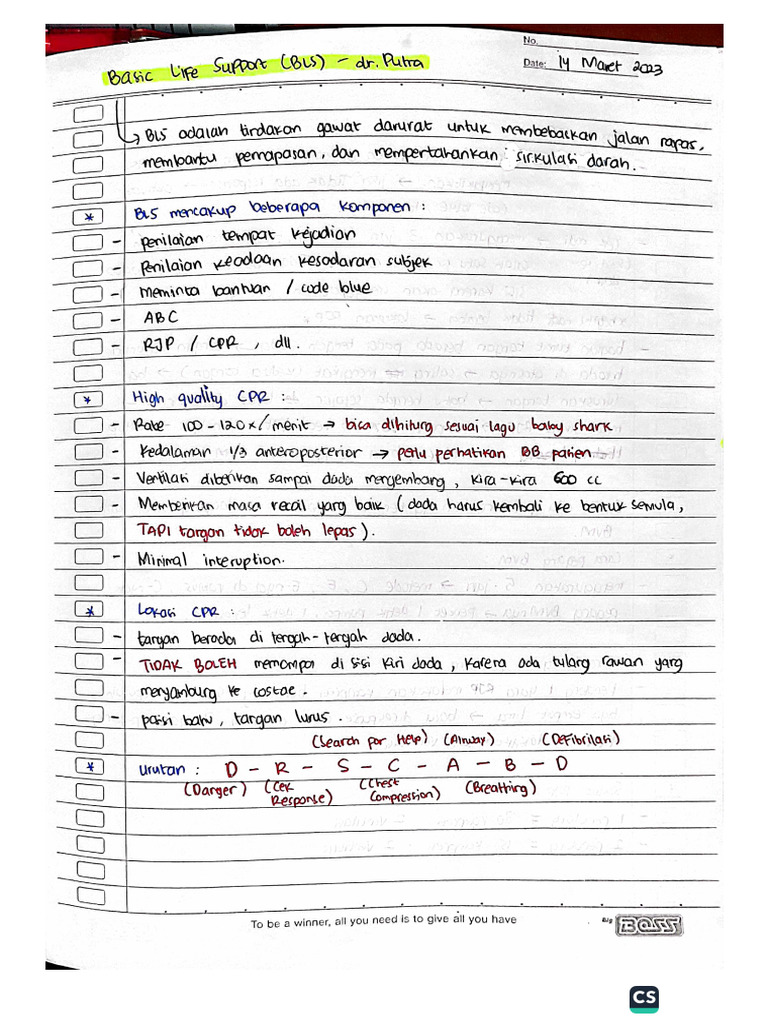 No.
Basic Life Support (BLS) – dr. Putra
Date: 14 Maret 2023
BLS adalah tindakan gawat darurat untuk membebaskan jalan napas,
membantu pernapasan, dan mempertahankan sirkulasi darah.
* BLS mencakup beberapa komponen :
- penilaian tempat kejadian
- Penilaian keadaan kesadaran subjek
- Meminta bantuan / code blue
- ABC
- RJP / CPR , dll.
* High quality CPR :
- Rate 100 - 120x / menit → bisa dihitung sesuai lagu baby shark
- Kedalaman 1/3 anteroposterior → perlu perhatikan BB pasien.
- Ventilasi diberikan sampai dada mengembang , kira-kira 600 cc
- Memberikan masa recoil yang baik ( dada harus kembali ke bentuk semula,
TAPI tangan tidak boleh lepas ).
- Minimal interuption.
* Lokasi CPR :
- tangan berada di tengah-tengah dada.
- TIDAK BOLEH memompa di sisi kiri dada , karena ada tulang rawan yang
menyambung ke costae .
- posisi bahu , tangan lurus .
(Search for Help) (Airway) (Defibrilasi)
* Urutan : D - R - S - C - A - B - D
(Danger) (Cek Response) (Chest Compression) (Breathing)
To be a winner, all you need is to give all you have
Big BOSS
CS